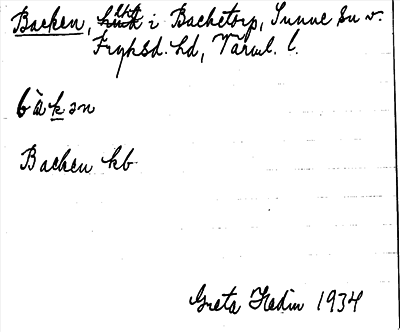 Backen, hkt i Backetorp, Sunne sn v.
Fryksd. hd, Värml. l.
bàkən
Backen kb
Greta Hedin 1934